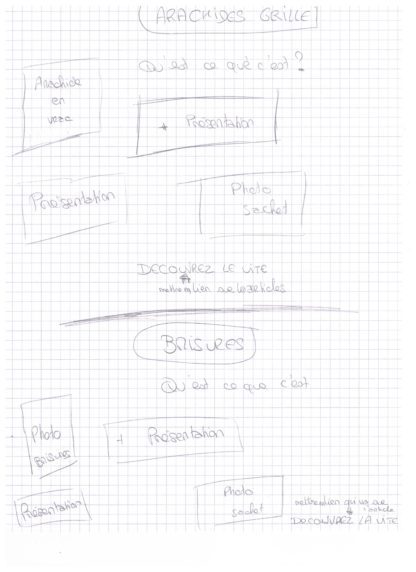 ARACHIDES GRILLE
Qu'est ce que c'est ?
Arachide
en
+ Présentation
Présentation
Photo
sachet
DECOUVREZ LE VITE
mettre lien
BRISURES
Qu'est ce que c'est
Photo
BRISURES
+ Présentation
Présentation
Photo
sachet
mettre lien qui
DECOUVREZ LA VITE